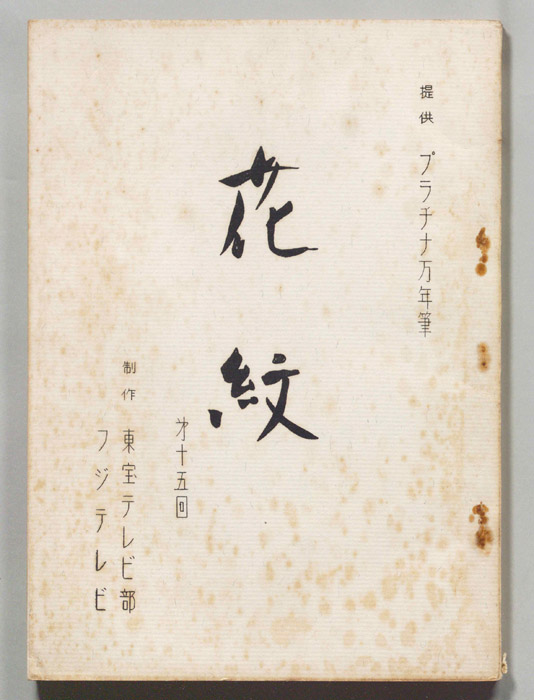 提供 プラチナ万年筆
花紋
第十五回
制作 東宝テレビ部
フジテレビ